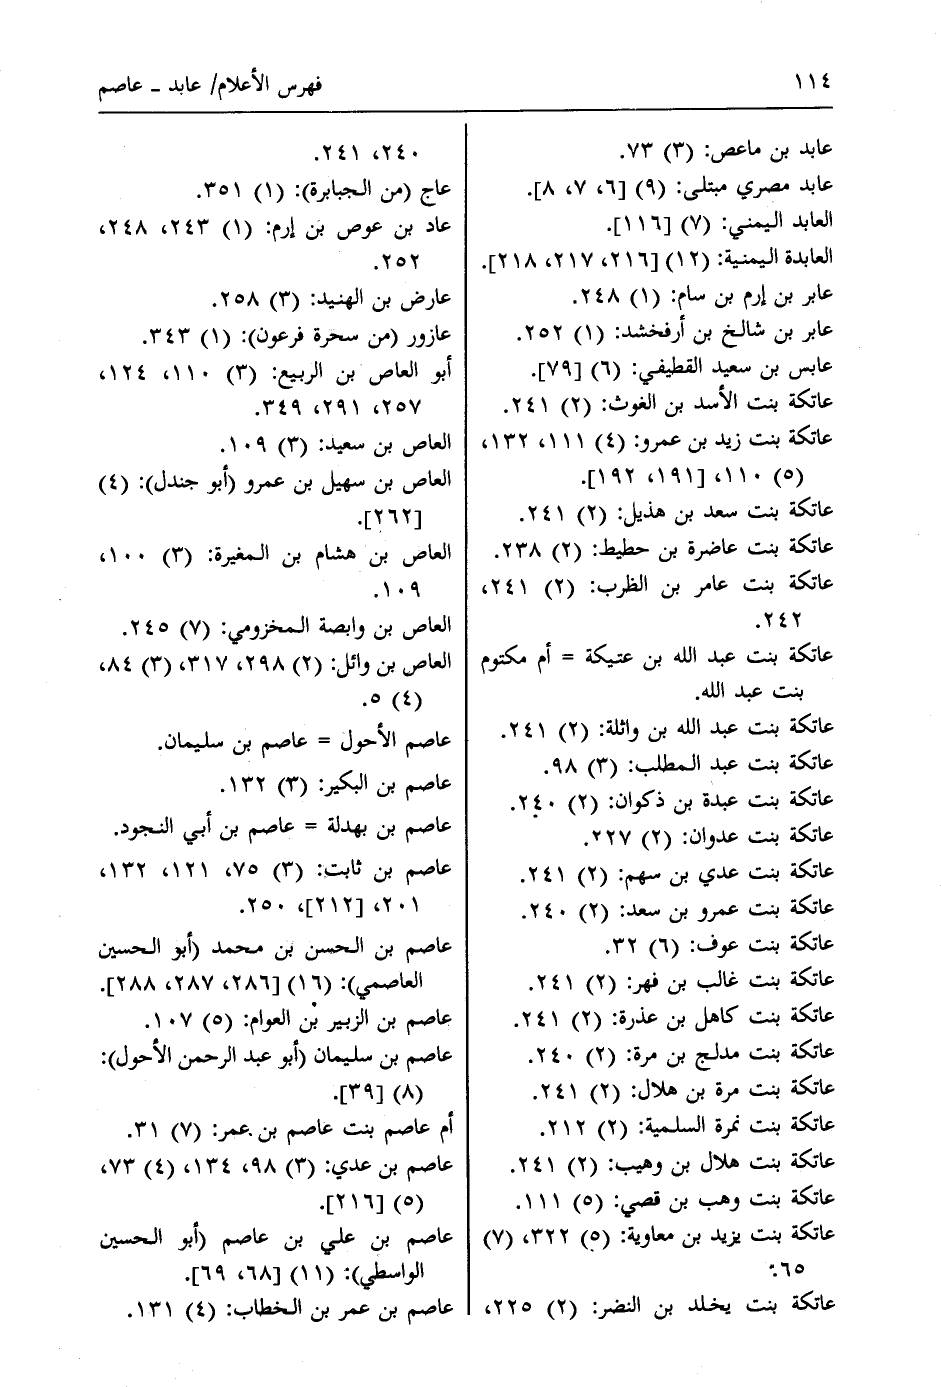 ١١٤
فهرس الأعلام/ عابد ـ عاصم
عابد بن ماعص: (٣) ٧٣.
عابد مصري مبتلى: (٩) [٦، ٧، ٨].
العابد اليمني: (٧) [١١٦].
العابدة اليمنية: (١٢) [٢١٦، ٢١٧، ٢١٨].
عابر بن إرم بن سام: (١) ٢٤٨.
عابر بن شالخ بن أرفخشد: (١) ٢٥٢.
عابس بن سعيد القطيفي: (٦) [٧٩].
عاتكة بنت الأسد بن الغوث: (٢) ٢٤١.
عاتكة بنت زيد بن عمرو: (٤) ١١١، ١٣٢،
(٥) ١١٠، [١٩١، ١٩٢].
عاتكة بنت سعد بن هذيل: (٢) ٢٤١.
عاتكة بنت عاضرة بن حطيط: (٢) ٢٣٨.
عاتكة بنت عامر بن الظرب: (٢) ٢٤١،
٢٤٢.
عاتكة بنت عبد الله بن عتيكة = أم مكتوم
بنت عبد الله.
عاتكة بنت عبد الله بن واثلة: (٢) ٢٤١.
عاتكة بنت عبد المطلب: (٣) ٩٨.
عاتكة بنت عبدة بن ذكوان: (٢) ٢٤٠.
عاتكة بنت عدوان: (٢) ٢٢٧.
عاتكة بنت عدي بن سهم: (٢) ٢٤١.
عاتكة بنت عمرو بن سعد: (٢) ٢٤٠.
عاتكة بنت عوف: (٦) ٣٢.
عاتكة بنت غالب بن فهر: (٢) ٢٤١.
عاتكة بنت كاهل بن عذرة: (٢) ٢٤١.
عاتكة بنت مدلج بن مرة: (٢) ٢٤٠.
عاتكة بنت مرة بن هلال: (٢) ٢٤١.
عاتكة بنت نمرة السلمية: (٢) ٢١٢.
عاتكة بنت هلال بن وهيب: (٢) ٢٤١.
عاتكة بنت وهب بن قصي: (٥) ١١١.
عاتكة بنت يزيد بن معاوية: (٥) ٣٢٢، (٧)
٦٥.
عاتكة بنت يخلد بن النضر: (٢) ٢٢٥،
٢٤٠، ٢٤١.
عاج (من الجبابرة): (١) ٣٥١.
عاد بن عوص بن إرم: (١) ٢٤٣، ٢٤٨،
٢٥٢.
عارض بن الهنيد: (٣) ٢٥٨.
عازور (من سحرة فرعون): (١) ٣٤٣.
أبو العاص بن الربيع: (٣) ١١٠، ١٢٤،
٢٥٧، ٢٩١، ٣٤٩.
العاص بن سعيد: (٣) ١٠٩.
العاص بن سهيل بن عمرو (أبو جندل): (٤)
[٢٦٢].
العاص بن هشام بن المغيرة: (٣) ١٠٠،
١٠٩.
العاص بن وابصة المخزومي: (٧) ٢٤٥.
العاص بن وائل: (٢) ٢٩٨، ٣١٧، (٣) ٨٤،
(٤) ٥.
عاصم الأحول = عاصم بن سليمان.
عاصم بن البكير: (٣) ١٣٢.
عاصم بن بهدلة = عاصم بن أبي النجود.
عاصم بن ثابت: (٣) ٧٥، ١٢١، ١٣٢،
٢٠١، [٢١٢]، ٢٥٠.
عاصم بن الحسن بن محمد (أبو الحسين
العاصمي): (١٦) [٢٨٦، ٢٨٧، ٢٨٨].
عاصم بن الزبير بن العوام: (٥) ١٠٧.
عاصم بن سليمان (أبو عبد الرحمن الأحول):
(٨) [٣٩].
أم عاصم بنت عاصم بن عمر: (٧) ٣١.
عاصم بن عدي: (٣) ٩٨، ١٣٤، (٤) ٧٣،
(٥) [٢١٦].
عاصم بن علي بن عاصم (أبو الحسين
الواسطي): (١١) [٦٨، ٦٩].
عاصم بن عمر بن الخطاب: (٤) ١٣١.